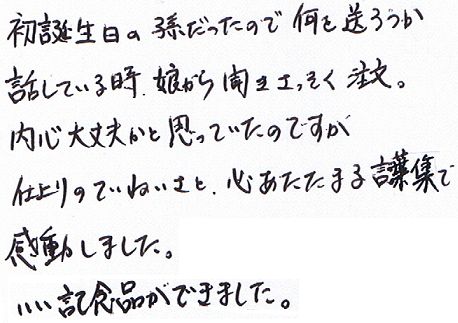 初誕生日の孫だったので何を送ろうか
話している時、娘から聞きさっそく注文。
内心大丈夫かと思っていたのですが
仕上りのていねいさと、心あたたまる言葉集で
感動しました。
いい記念品ができました。